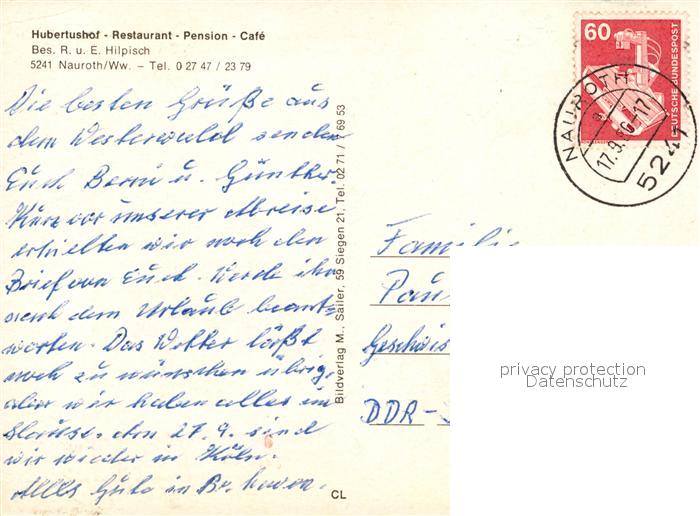 Hubertushof - Restaurant - Pension - Café
Bes. R. u. E. Hilpisch
5241 Nauroth/Ww. - Tel. 0 27 47 / 23 79
Die besten Grüße aus
dem Westerwald senden
Euch Berni u. Günther.
Kurz vor unserer Abreise
erhielten wir noch den
Brief von Euch. Werde ihn
nach dem Urlaub beant=
worten. Das Wetter läßt
noch zu wünschen übrig,
aber wir haben alles im
den 27.9. sind
wir wieder in Köln.
Alles Gute in
CL
Bildverlag M. Sahler, 59 Siegen 21, Tel. 02 71 / 7 69 53
60
DEUTSCHE BUNDESPOST
NAUROTH
a
17.9.86-17
5241
Familie
Pau
Geschwis
DDR-
privacy protection
Datenschutz